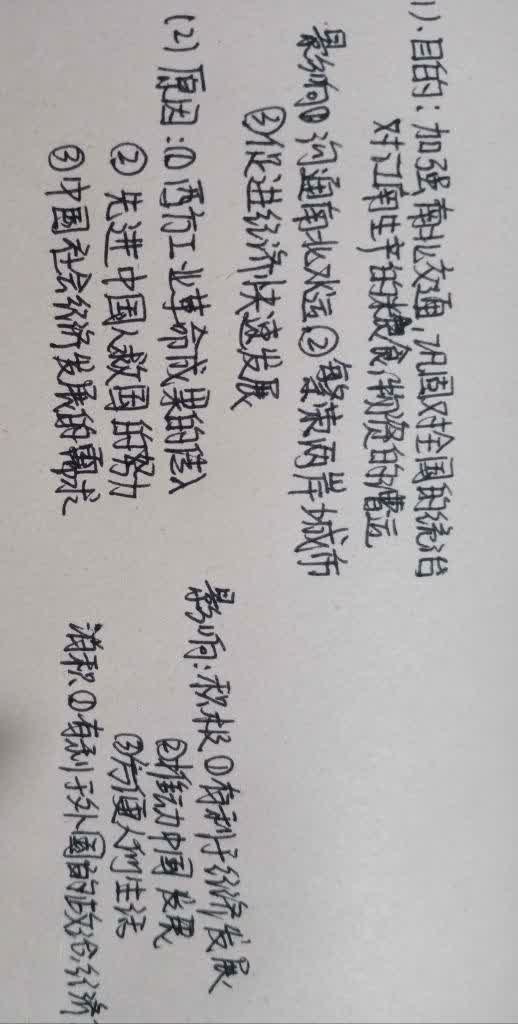 1).目的：加强南北交通，巩固对全国的统治
对江南生产的粮食，物资的漕运
影响①沟通南北水运②繁荣两岸城市
③促进经济快速发展
(2)原因：①西方工业革命成果的传入
②先进中国人救国的努力
③中国社会经济发展的需求
影响：积极①有利于经济发展
②推动中国发展
③方便人们生活
消积①有利于外国的政治,经济